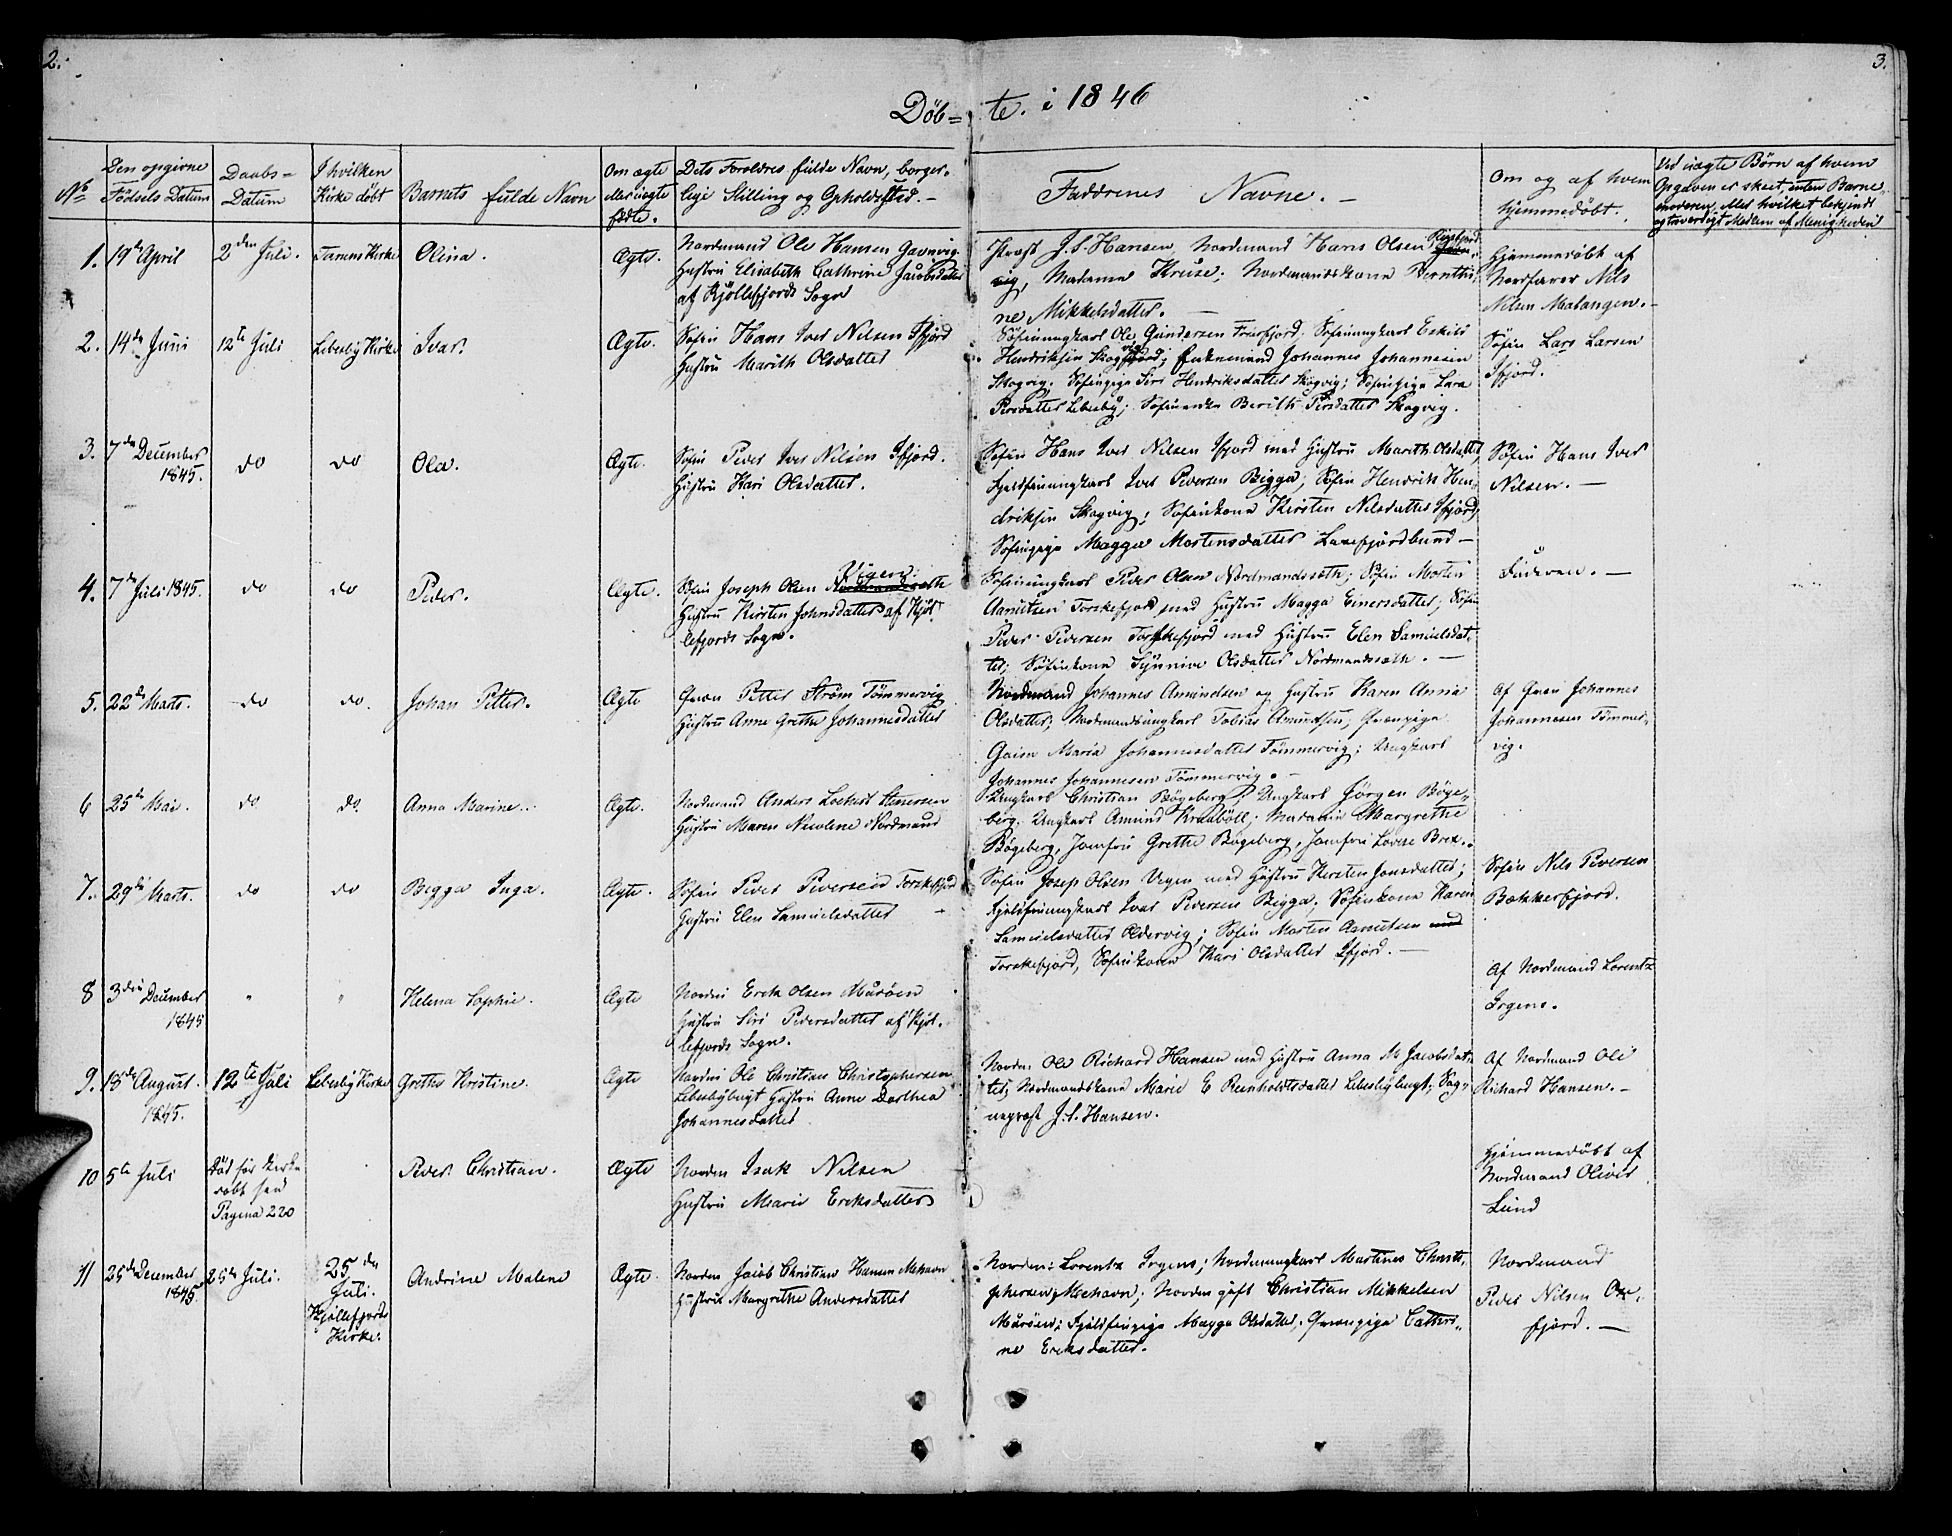 2.
3.
Döb= te. i 1846
No
Den opgivne
Födsels Datum
Daabs=
Datum
I hvilken
Kirke döbt
Barnets fulde Navn
Om ægte
eller uægte
födte.
Dets Forældres fulde Navn, borger-
lige Stilling og Opholdssted. -
Faddrenes Navne. -
Om og af hvem
hjemmedöbt.
Ved uægte Börn af hvem
Opgaven er skeet, enten Barne-
moderen, eller hvilket bekjendt
og troværdigt Medlem af Menigheden
1. 19de April
2den Juli.
Tanens Kirke
Olina.
Ægte.
Nordmand Ole Hansen Gavnvig.
Hustru Elisabeth Cathrine Jacobsdatter
af Kjöllefjords Sogn
Provst J. S. Hansen, Nordmand Hans Olsen
vig, Madame Kruse; Nordmandskone Bernthi-
ne Mikkelsdatter. -
Hjemmedöbt af
Nordfarer Nils
Nilsen Malangen. -
2. 14de Juni
12te Juli
Lebesby Kirke
Ivar.
Ægte.
Söfin Hans Iver Nilsen Ifjord
Hustru Marith Olsdatter
Söfinungkarl Ole Gundersen Friarfjord, Söfinungkarl Eskild
Hendriksen Skogvig; Enkemand Johannes Johannesen
Skogvig. Söfinpige Siri Hendriksdatter Skogvig; Söfinpige Lara
Persdatter Lebesby; Söfinenke Berith Persdatter Skogvig.
Söfin Lars Larsen
Ifjord.
3. 7de December
1845.
do
do
Ola.
Ægte.
Söfin Peder Iver Nilsen Ifjord.
Hustru Kari Olsdatter.
Söfin Hans Iver Nilsen Ifjord med Hustru Marith Olsdatter,
Fjeldfinungkarl Iver Pedersen Bigga; Söfin Hendrik Hen-
driksen Skogvig; Söfinkone Kirsten Nilsdatter Ifjord,
Söfinpige Magga Mortensdatter Laxefjordbund -
Söfin Hans Iver
Nilsen. -
4. 7de Juli 1845.
do
do
Peder.
Ægte.
Vigen
Söfin Joseph Olsen Nordmandssæth
Hustru Kirsten Johnsdatter af Kjöl-
lefjords Sogn.
Söfinungkarl Peder Olsen Nordmandssæth; Söfin Morten
Aanutsen Torskefjord med Hustru Magga Einersdatter; Söfin
Peder Pedersen Torskefjord med Hustru Elen Samuelsdat-
ter; Söfinkone Synnive Olsdatter Nordmandssæth. -
Faderen. -
5. 22de Marts.
do
do.
Johan Petter.
Ægte
Qvæn Petter Ström Tömmervig
Hustru Anne Grethe Johannesdatter
Nordmand Johannes Amundsen og Hustru Karen Anna
Olsdatter; Nordmandsungkarl Tobias Amundsen, Qvænpige
Gaisa Maria Johannesdatter Tömmervig; Ungkarl
Johannes Johannesen Tömmervig. -
Af Qvæn Johannes
Johannesen Tömmer-
vig.
6 25de Mai.
do
do.
Anna Marine.
Ægte.
Nordmand Anders Lockert Stenersen
Hustru Maren Nicoline Nordmand
Ungkarl Christian Bögeberg; Ungkarl Jörgen Böge-
berg. Ungkarl Amund Kraaböll; Madame Margrethe
Bögeberg, Jomfru Grethe Bögeberg, Jomfru Lovise Brox.
7. 29de Marts.
do
do
Begga Inga.
Ægte.
Söfin Peder Pedersen Torskefjord
Hustru Elen Samuelsdatter -
Söfin Josep Olsen Vegen med Hustru Kirsten Jonsdatter;
Fjeldfinungkarl Ivar Pedersen Bigga; Söfinkone Karen
Samuelsdatter Oldervig; Söfin Morten Aanutsen med
Torskefjord, Söfinkone Kari Olsdatter Ifjord. -
Söfin Nils Pedersen
Bekkerfjord.
8 3die December
1845
"
"
Helena Sophie.
Ægte
Norden Erek Olsen Maröen
Hustru Siri Pedersdatter af Kjöl-
lefjords Sogn.
Af Nordmand Lorentz
Irgens.
9. 13de August.
1845.
12te Juli
Lebesby Kirke
Grethe Kristine.
Ægte
Norden Ole Christian Christophersen
Lebesbybugt Hustru Anne Dorthea
Johannesdatter
Norden Ole Richard Hansen med Hustru Anna M. Jacobsdat-
ter; Nordmandskone Marie E Reinholdtsdatter Lebesbybugt; Sog-
neprost J. S. Hansen.
Af Nordmand Ole
Richard Hansen. -
10 5te Juli
Död för Kirke
döbt see
Pagina 220
Peder Christian.
Ægte
Norden Isak Nilsen
Hustru Marie Ereksdatter
Hjemmedöbt af
Nordmand Oliver
Lund
11 25de December
1845
25de Juli.
25de
Juli.
Kjöllefjords
Kirke.
Andrine Malene
Ægte.
Norden Jacob Christian Hansen Mehavn
Hustru Margrethe Andersdatter
Norden: Lorentz Irgens; Nordmungkarl Martines Christo-
phersen, Mehavn; Norden gift Christian Mikkelsen
Maröen; Fjeldfinpige Magga Olsdatter; Qvænpige Cathri-
ne Ereksdatter.
Nordmand
Peder Nilsen Oxe-
fjord. -